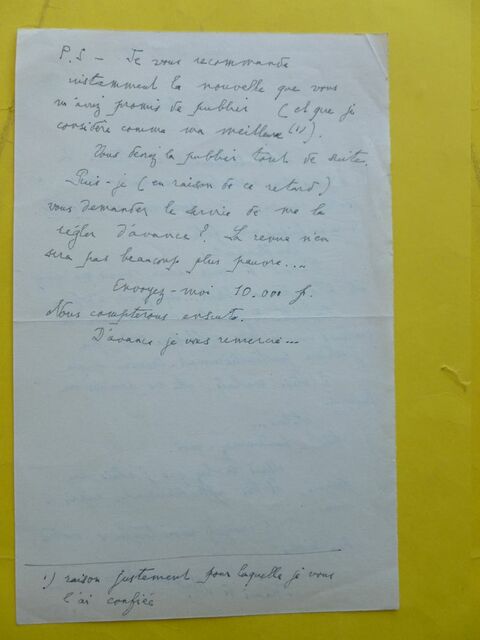 P.S – Je vous recommande
instamment la nouvelle que vous
m'avez promis de publier (et que je
considère comme ma meilleure (1)).
Vous deviez la publier tout de suite.
Puis-je (en raison de ce retard)
vous demander le service de me la
régler d'avance ? La revue n'en
sera pas beaucoup plus pauvre...
Envoyez-moi 10.000 f.
Nous compterons ensuite.
D'avance je vous remercie...
1) raison justement pour laquelle je vous
l'ai confiée